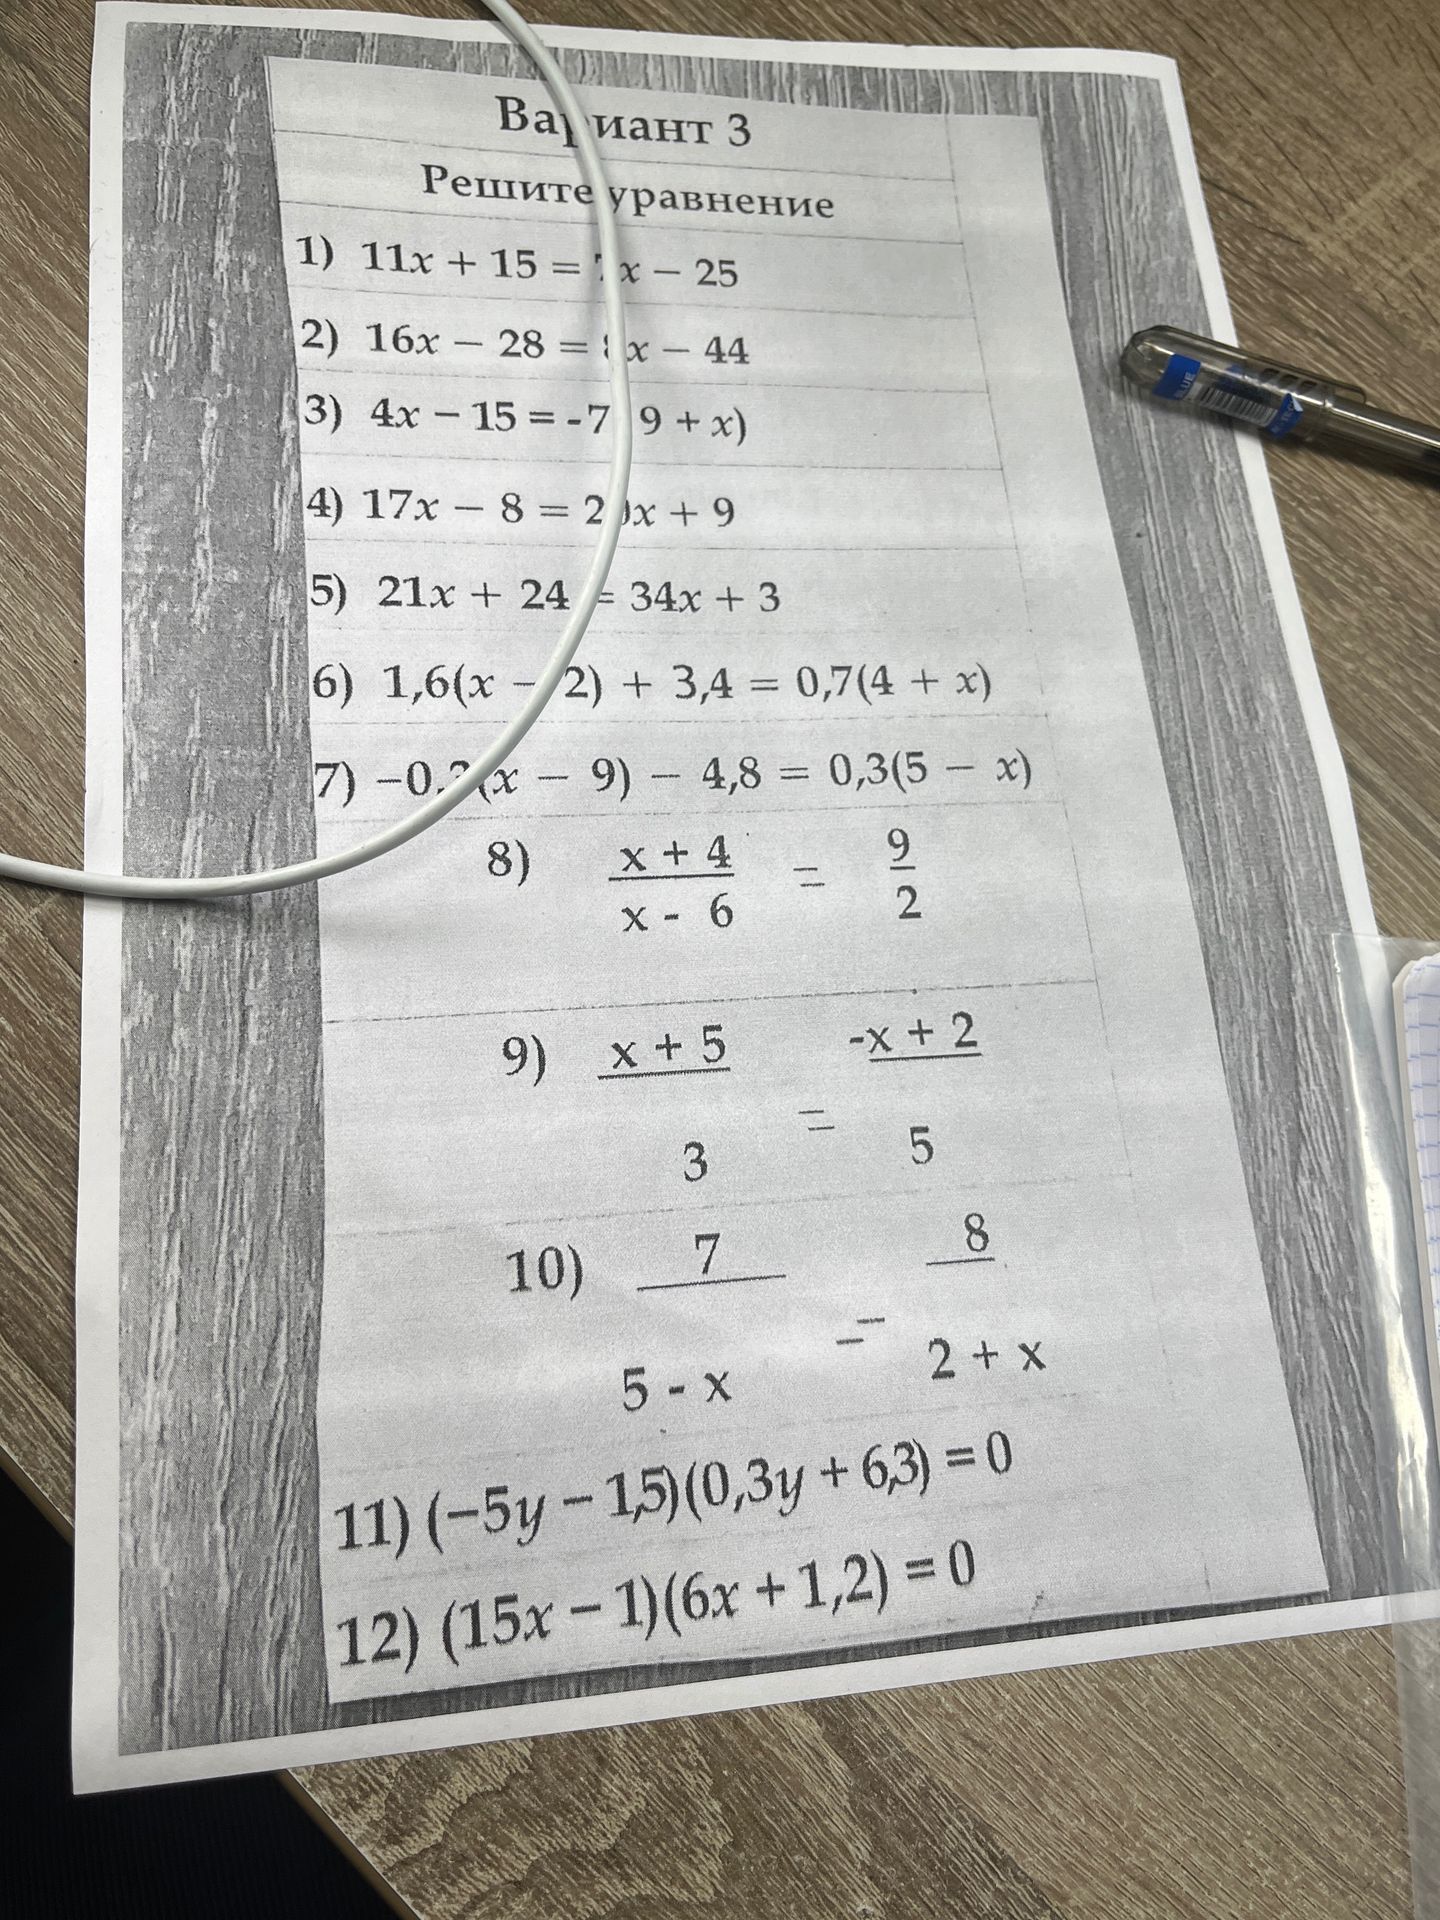 Вариант 3
Решите уравнение
1) 11x + 15 = 7x − 25
2) 16x − 28 = 8x − 44
3) 4x − 15 = -7(9 + x)
4) 17x − 8 = 20x + 9
5) 21x + 24 = 34x + 3
6) 1,6(x − 2) + 3,4 = 0,7(4 + x)
7) −0, (x − 9) − 4,8 = 0,3(5 − x)
8) x + 4 = 9
x - 6 2
9) x + 5 -x + 2
=
3 5
10) 7 8
=
5 - x 2 + x
11) (−5y − 1,5)(0,3y + 6,3) = 0
12) (15x − 1)(6x + 1,2) = 0
BLUE